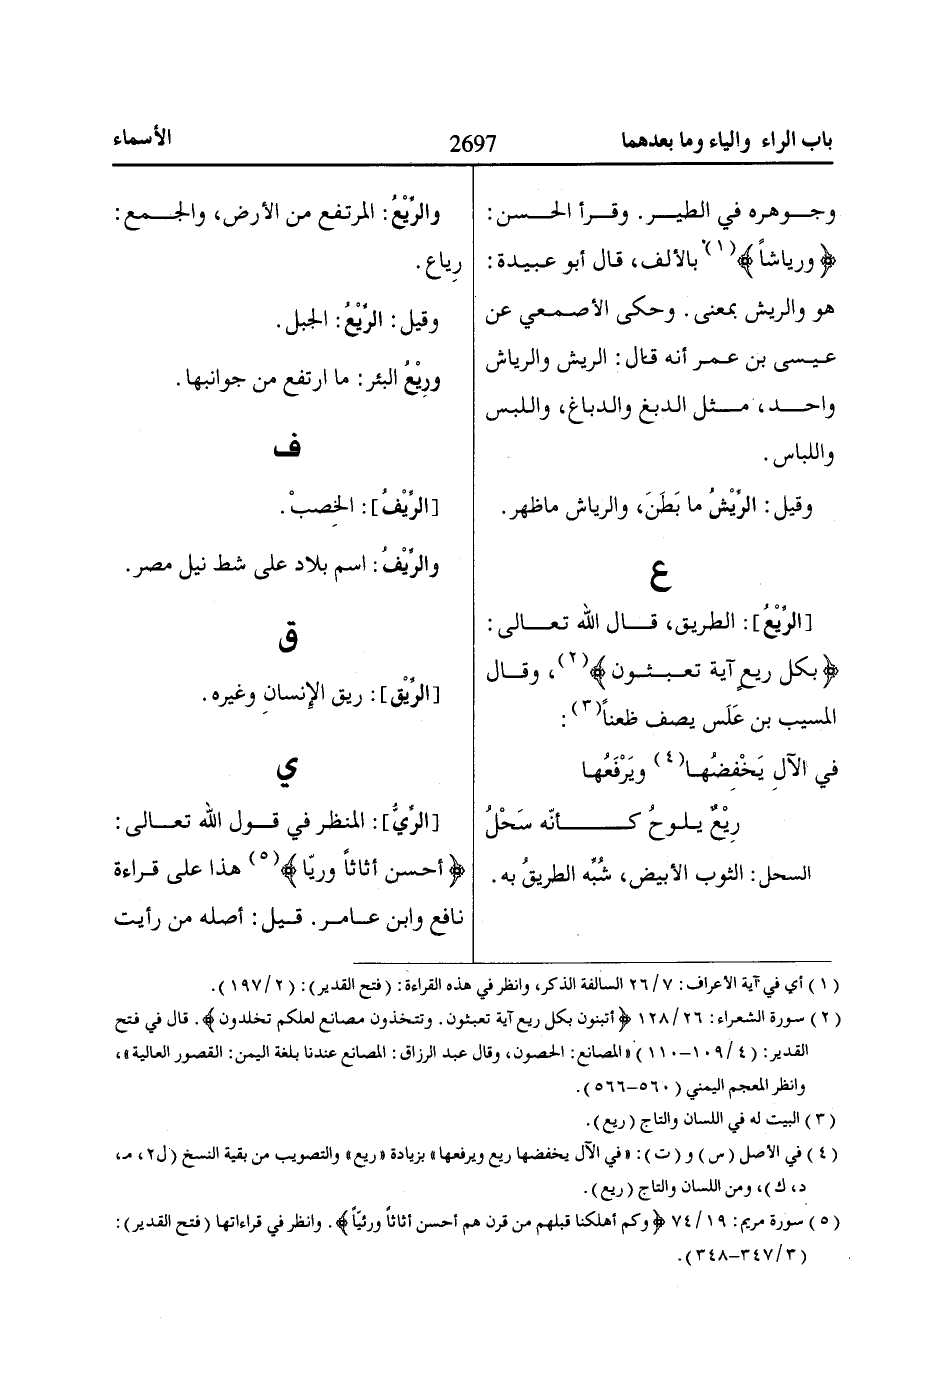 باب الراء والياء وما بعدهما
2697
الأسماء
وجوهره في الطير. وقرأ الحسن:
﴿ورياشاً﴾(١) بالألف، قال أبو عبيدة:
هو والريش بمعنى. وحكى الأصمعي عن
عيسى بن عمر أنه قال: الريش والرياش
واحد، مثل الدبغ والدباغ، واللبس
واللباس.
وقيل: الرِّيْشُ ما بَطَنَ، والرياش ماظهر.
ع
[الرِّيْعُ]: الطريق، قال الله تعالى:
﴿بكل ريعٍ آية تعبثون﴾(٢)، وقال
المسيب بن عَلَس يصف ظعناً(٣):
في الآلِ يَخْفِضُها(٤) ويَرْفَعُها
رِيْعٌ يلوحُ كأنّه سَحْلُ
السحل: الثوب الأبيض، شُبِّه الطريقُ به.
والرِّيْعُ: المرتفع من الأرض، والجمع:
رِياع.
وقيل: الرِّيْعُ: الجبل.
ورِيْعُ البئر: ما ارتفع من جوانبها.
ف
[الرِّيْفُ]: الخِصبْ.
والرِّيْفُ: اسم بلاد على شط نيل مصر.
ق
[الرِّيْق]: ريق الإنسانِ وغيره.
ي
[الرِّيُّ]: المنظر في قول الله تعالى:
﴿أحسن أثاثاً وريّا﴾(٥) هذا على قراءة
نافع وابن عامر. قيل: أصله من رأيت
(١) أي في آية الأعراف: ٢٦/٧ السالفة الذكر، وانظر في هذه القراءة: (فتح القدير): (١٩٧/٢).
(٢) سورة الشعراء: ١٢٨/٢٦ ﴿أتبنون بكل ريع آية تعبثون. وتتخذون مصانع لعلكم تخلدون﴾. قال في فتح
القدير: (١٠٩/٤-١١٠) «المصانع: الحصون، وقال عبد الرزاق: المصانع عندنا بلغة اليمن: القصور العالية»،
وانظر المعجم اليمني (٥٦٠-٥٦٦).
(٣) البيت له في اللسان والتاج (ريع).
(٤) في الأصل (س) و(ت): «في الآل يخفضها ريع ويرفعها» بزيادة «ريع» والتصويب من بقية النسخ (ل٢، مـ،
د، ك)، ومن اللسان والتاج (ريع).
(٥) سورة مريم: ٧٤/١٩ ﴿وكم أهلكنا قبلهم من قرن هم أحسن أثاثاً ورئيّاً﴾. وانظر في قراءاتها (فتح القدير):
(٣٤٧/٣-٣٤٨).